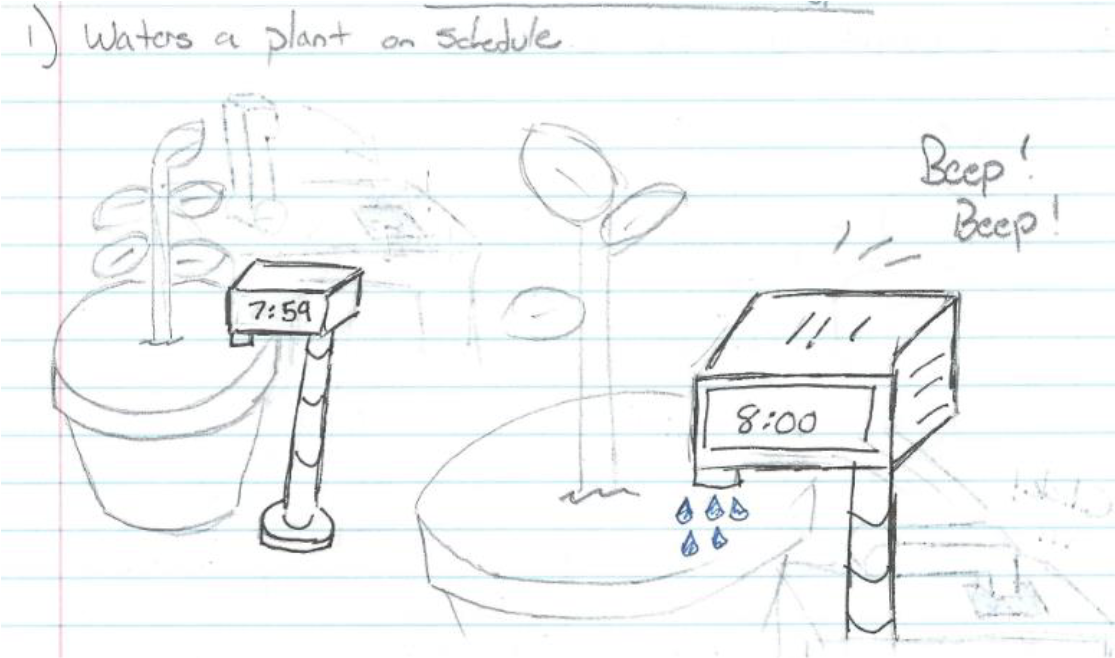 1) Waters a plant on schedule
Beep!
Beep!
7:59
8:00